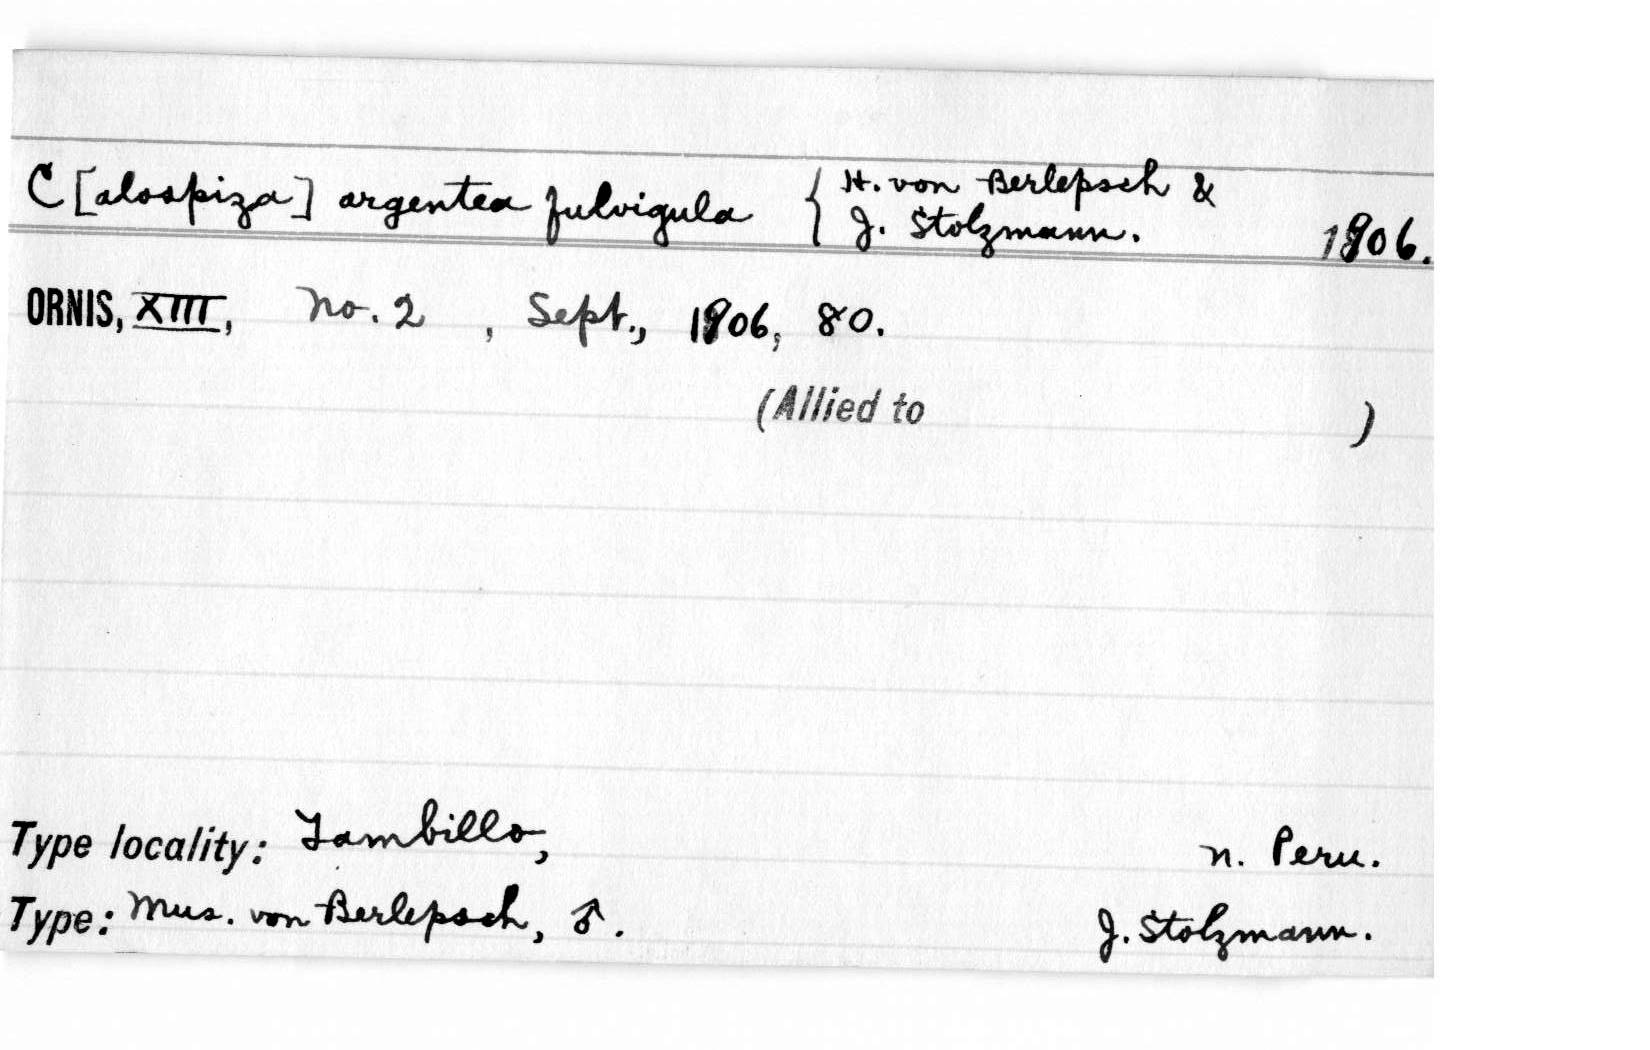 C[alospiza] argentea fulvigula { H. von Berlepsch &
J. Stolzmann. 1906.
ORNIS, XIII, No. 2, Sept., 1906, 80.
(Allied to )
Type locality: Tambillo, n. Peru.
Type: Mus. von Berlepsch, ♂. J. Stolzmann.